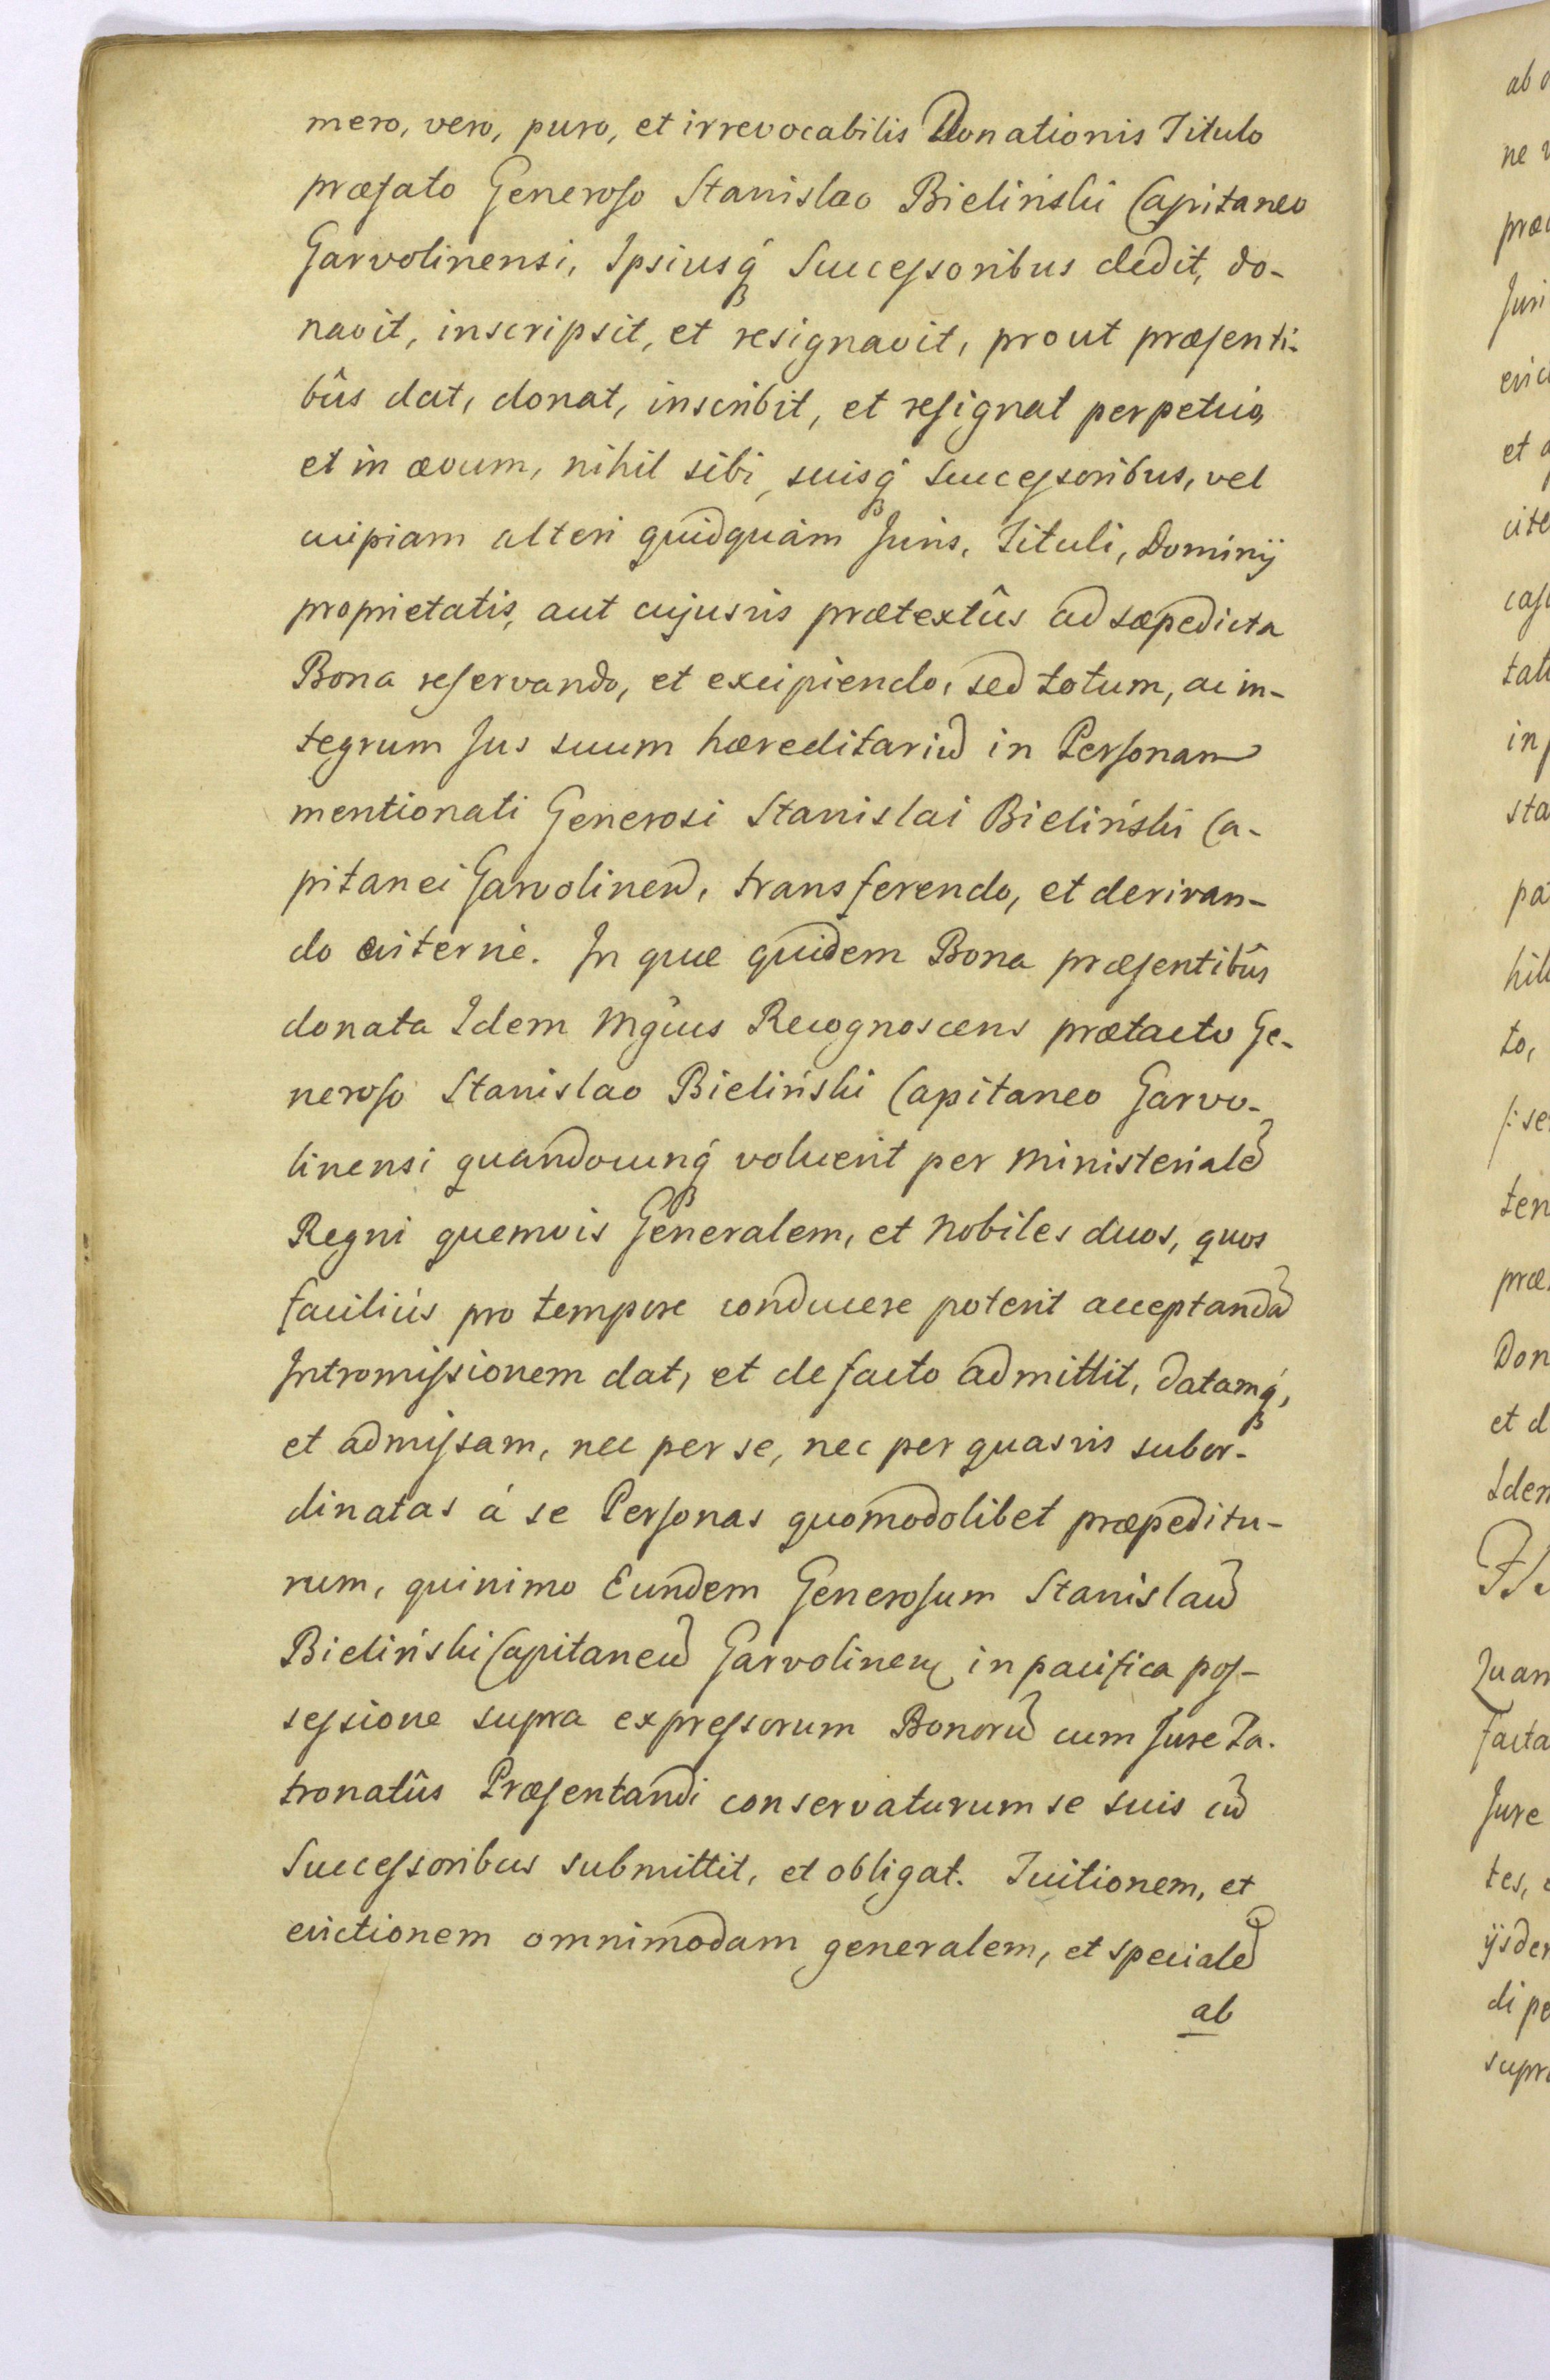 mero, vero, puro, et irrevocabilis Donationis Titulo
præfato Generoso Stanislao Bieliński Capitaneo
Garvolinensi, Ipsiusq́ Successoribus dedit, do-
navit, inscripsit, et resignavit, prout præsenti-
bûs dat, donat, inscribit, et resignat perpetuo,
et in ævum, nihil sibi, suisq́ Successoribus, vel
cuipiam alteri quidquám Juris, Tituli, Dominij
proprietatis, aut cujusvis prætextûs ad sæpedicta
Bona reservando, et excipiendo, sed totum, ac in-
tegrum Jus suum hæreditariũ in Personam
mentionati Generosi Stanislai Bieliński Ca-
pitanei Garvolineñ, transferendo, et derivan-
do æviternè. In quæ quidem Bona præsentibûs
donata Idem Mgcus Recognoscens prætacto Ge-
neroso Stanislao Bieliński Capitaneo Garvo-
linensi quandocunq́ voluerit per Ministerialẽ
Regni quemvis Generalem, et Nobiles duos, quos
faciliús pro tempore conducere poterit acceptandã
Intromissionem dat, et de facto admittit, datamq́,
et admissam, nec per se, nec per quasvis subor-
dinatas á se Personas quomodolibet præpeditu-
rum, quinimo Eundem Generosum Stanislaũ
Bieliński Capitaneũ Garvolineñ in pacifica pos-
sessione supra expressorum Bonorũ cum Jure Pa-
tronatûs Præsentandi conservaturum se suis cũ
Successoribus submittit, et obligat. Tuitionem, et
evictionem omnimodam generalem, et specialẽ
ab
ne
præ
Juri
evic
et
cite
casu
tati
in
sta
pa
hil
to,
/: se
ten
præ
Don
et d
Idem
Quam
facta
Jure
tes,
ijsdem
di pe
supra